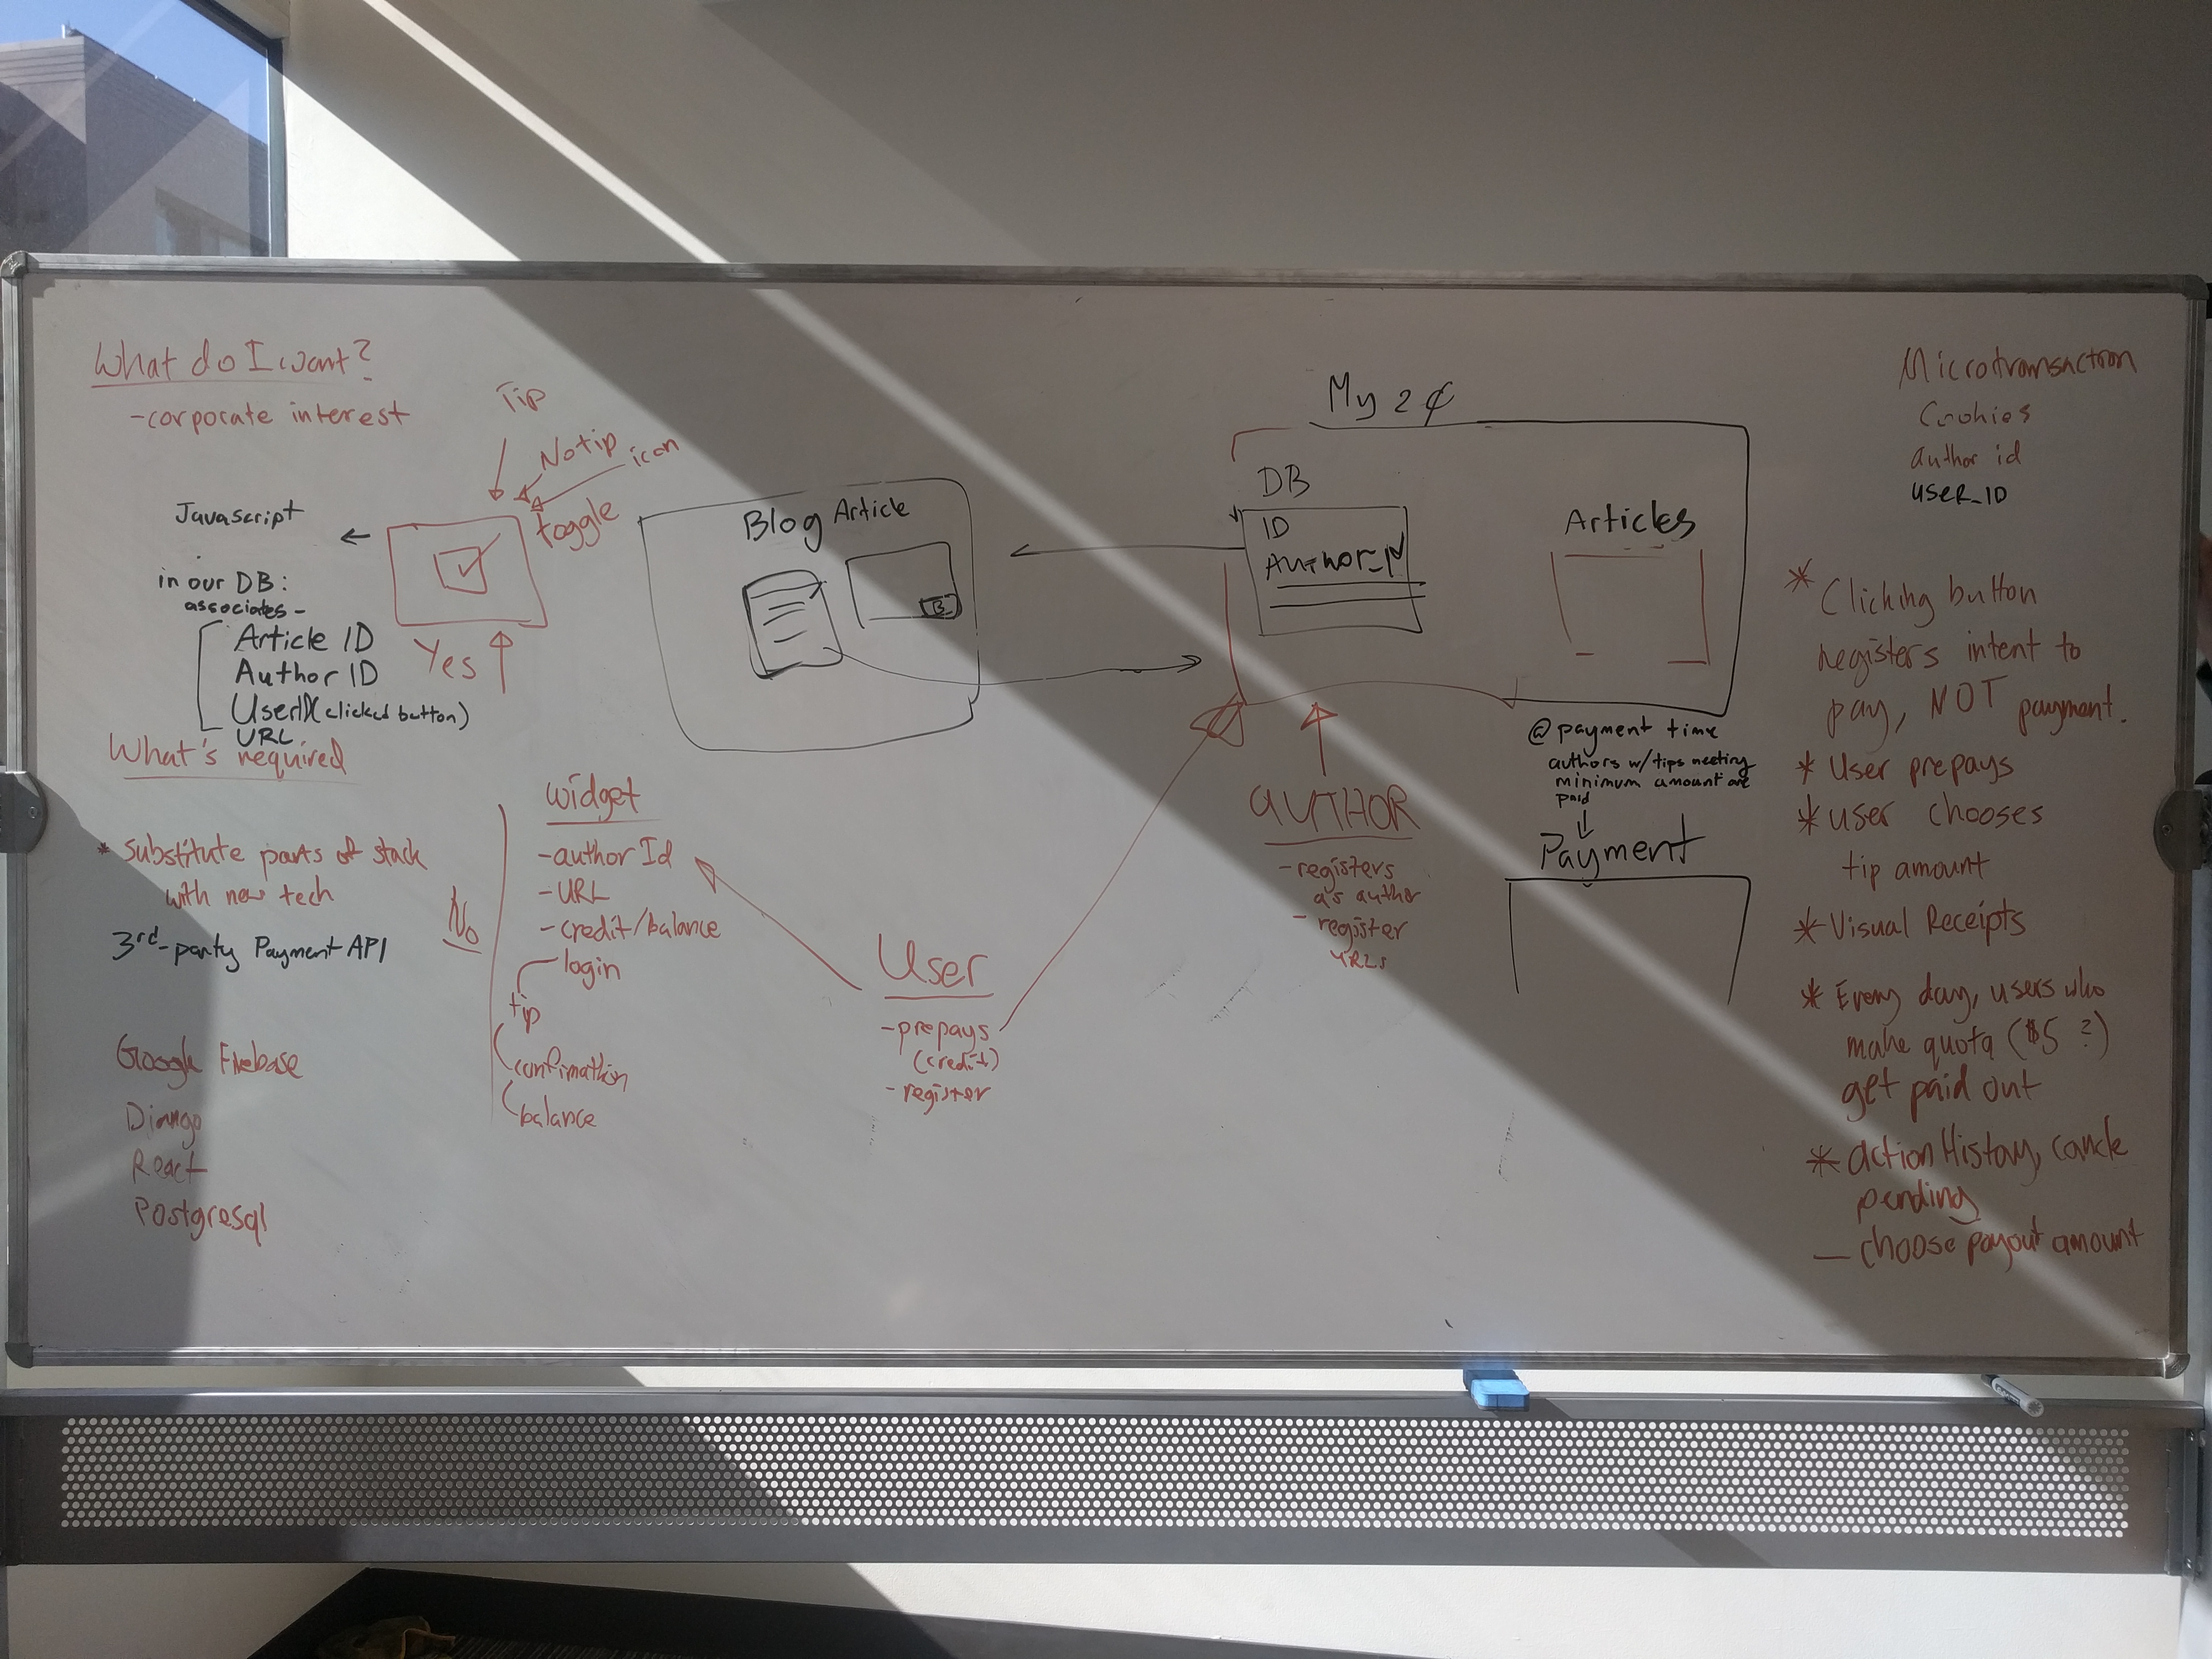 What do I want?
-corporate interest
Tip
No tip
icon
toggle
Javascript
in our DB:
associates-
Article ID
Author ID
UserID (clicked button)
URL
Yes
What's required
* substitute parts of stack
with new tech
3rd-party Payment API
No
Google Firebase
Django
React
Postgresql
widget
-author Id
-URL
-credit/balance
login
tip
confirmation
balance
Blog Article
B
User
-prepays
(credit)
-register
My 2¢
DB
ID
Author_ID
Articles
AUTHOR
-registers
as author
- register
URLs
@ payment time
authors w/tips meeting
minimum amount are
paid
Payment
Microtransaction
Cookies
author id
USER_ID
* Clicking button
registers intent to
pay, NOT payment.
* User prepays
* user chooses
tip amount
* Visual Receipts
* Every day, users who
make quota ($5 ?)
get paid out
* action History, cancle
pending
- choose payout amount